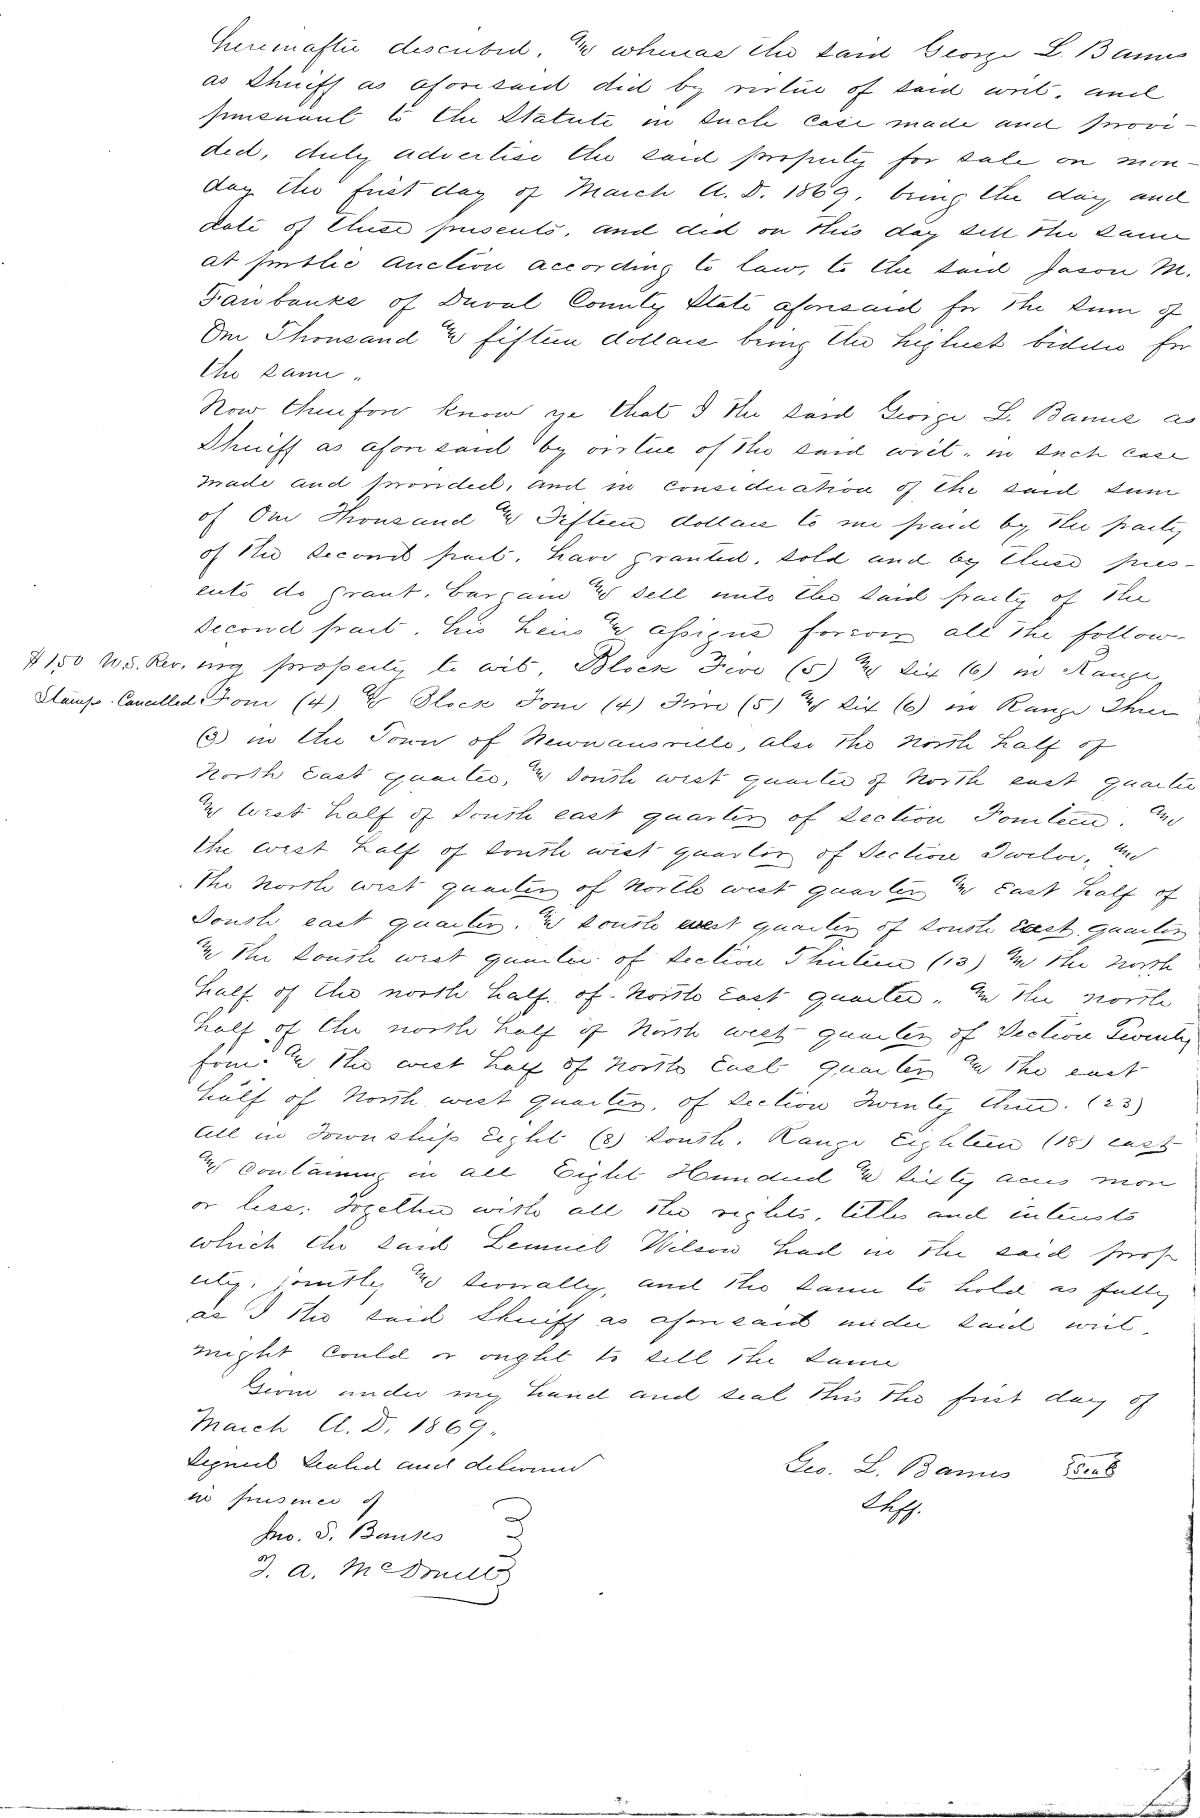 hereinafter described. & whereas the said George L. Barnes
as Sheriff as aforesaid did by virtue of said writ. and
pursuant to the Statute in such case made and provi-
ded, duly advertise the said property for sale on mon-
day the first day of March A.D. 1869. being the day and
date of these presents. and did on this day sell the same
at public auction according to law, to the said Jason M.
Fairbanks of Duval County State aforesaid for the sum of
One Thousand & fifteen dollars being the highest bidder for
the same.
Now therefore know ye that I the said George L. Barnes as
Sheriff as aforesaid by virtue of the said writ. in such case
made and provided, and in consideration of the said sum
of One Thousand & Fifteen dollars to me paid by the party
of the second part. have granted. sold and by these pres-
ents do grant. bargain & sell unto the said party of the
second part. his heirs & assigns forever all the follow-
$1,50 U.S. Rev. ing property to wit. Block Five (5) & Six (6) in Range
Stamps Cancelled Four (4) & Block Four (4) Five (5) & Six (6) in Range Three
(3) in the Town of Newnansville, also the North half of
North East quarter. & South west quarter of North east quarter
& West half of South east quarter of Section Fourteen. and
the west half of South west quarter of Section Twelve. and
the North west quarter of North west quarter & East half of
South east quarter. & South west quarter of South East quarter
& the South west quarter of Section Thirteen (13) & the North
half of the north half of North East quarter. & the north
half of the north half of North west quarter of Section Twenty
four. & the west half of North East quarter & the east
half of North west quarter. of Section Twenty three. (23)
All in Township Eight (8) South. Range Eighteen (18) east
& containing in all Eight Hundred & Sixty acres more
or less. Together with all the rights, titles and interests
which the said Lemuel Wilson had in the said prop
erty. jointly & severally, and the same to hold as fully
as I the said Sheriff as aforesaid under said writ.
might could or ought to sell the same
Given under my hand and seal this the first day of
March A.D. 1869.
Signed Sealed and delivered
in presence of
Geo. L. Barnes Seal
Shff.
Jno. S. Banks